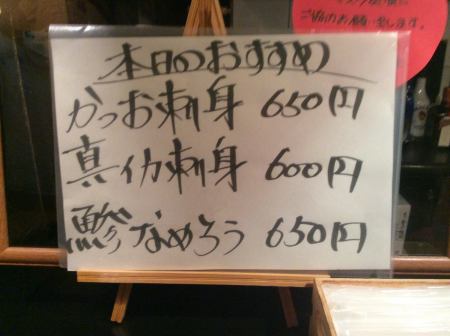 ご協力お願い致します。
本日のおすすめ
かつお刺身 650円
真イカ刺身 600円
鯵なめろう 650円